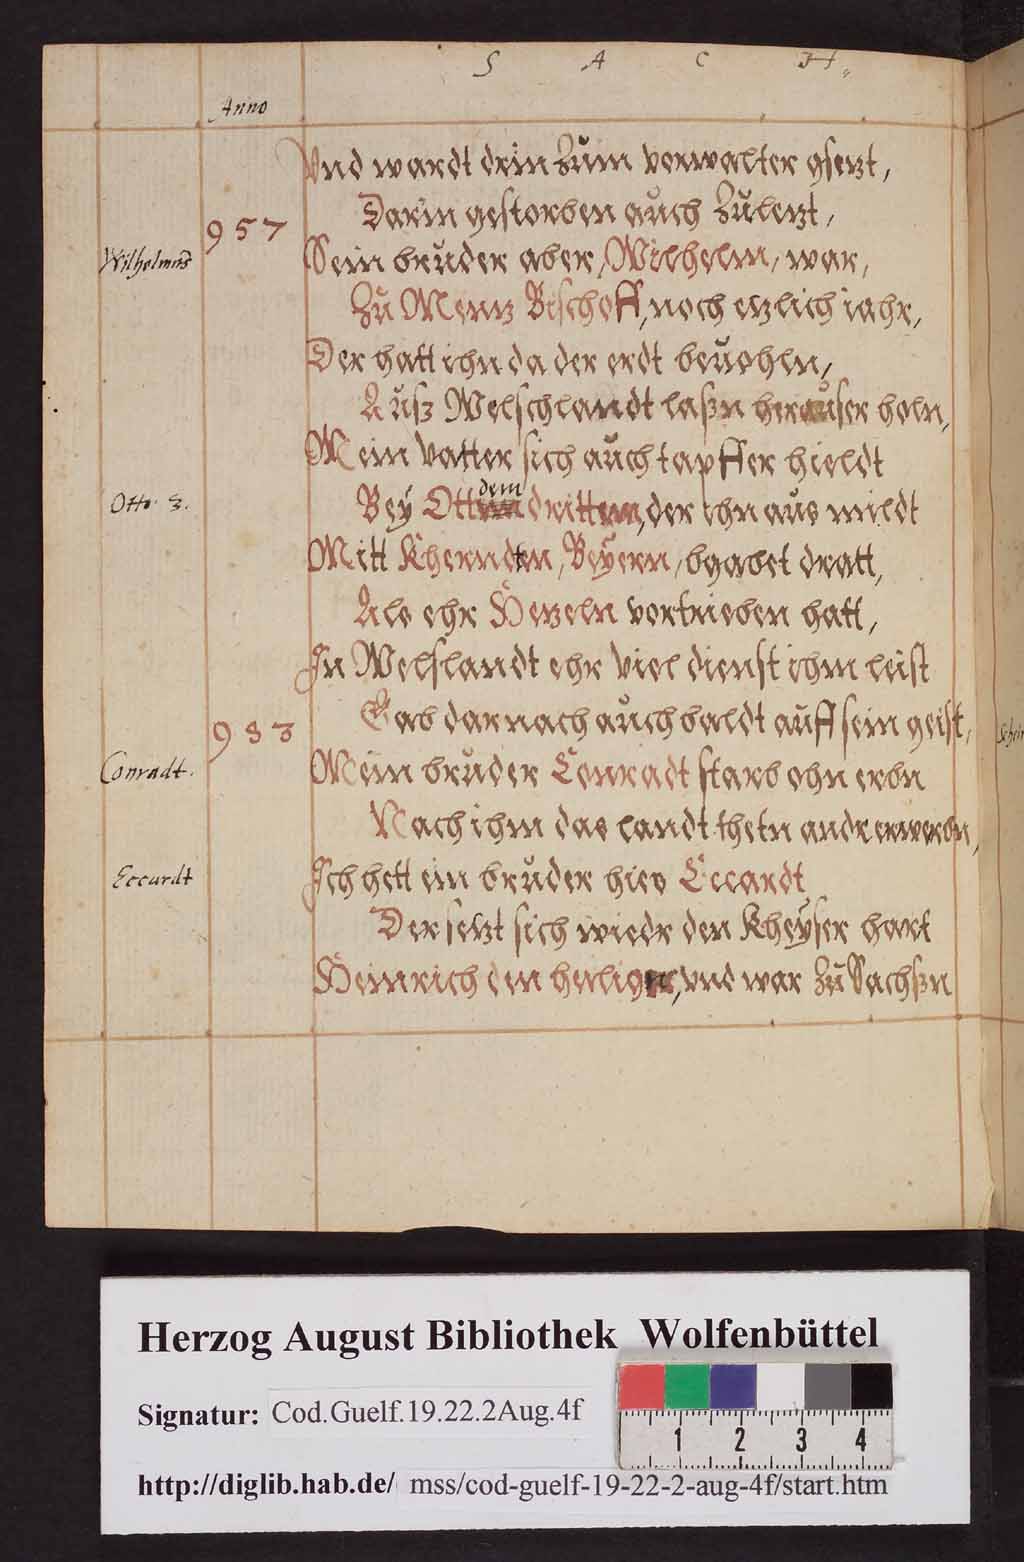 S A C H,,
Anno
Vnd wardt drin Zum verwalter gsetzt,
Darin gestorben auch Zuletzt,
957
Wilhelmus
Sein bruder aber, Wilhelm, war,
Zu Mentz Bischoff, noch etzlich iahr,
Der hatt ihn da der erdt beuohln,
Ausz Welschlandt laßn herauser holn,
Mein vatter sich auch tapffer hieldt
Otto 3.
dem
Bey Otten dritten, der ihn aus mildt
Mitt Khernden, Beyern, bgabet dratt,
Als ehr Hetzeln vertrieben hatt,
In Welslandt ehr viel dienst ihm leist
983
Gab darnach auch baldt auff sein geist,
Conradt.
Mein bruder Conradt starb ohn erbn
Nach ihm das landt thetn andr erwerbn,
Eccardt
Ich hett ein bruder hies Eccardt
Der setzt sich wiedr den Kheyser hart
Heinrich den heiligen, vnd war Zu Sachßn
Herzog August Bibliothek Wolfenbüttel
Signatur: Cod.Guelf.19.22.2Aug.4f
1 2 3 4
http://diglib.hab.de/ mss/cod-guelf-19-22-2-aug-4f/start.htm